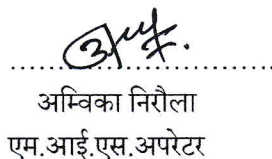 अम्विका निरौला
एम.आई.एस.अपरेटर